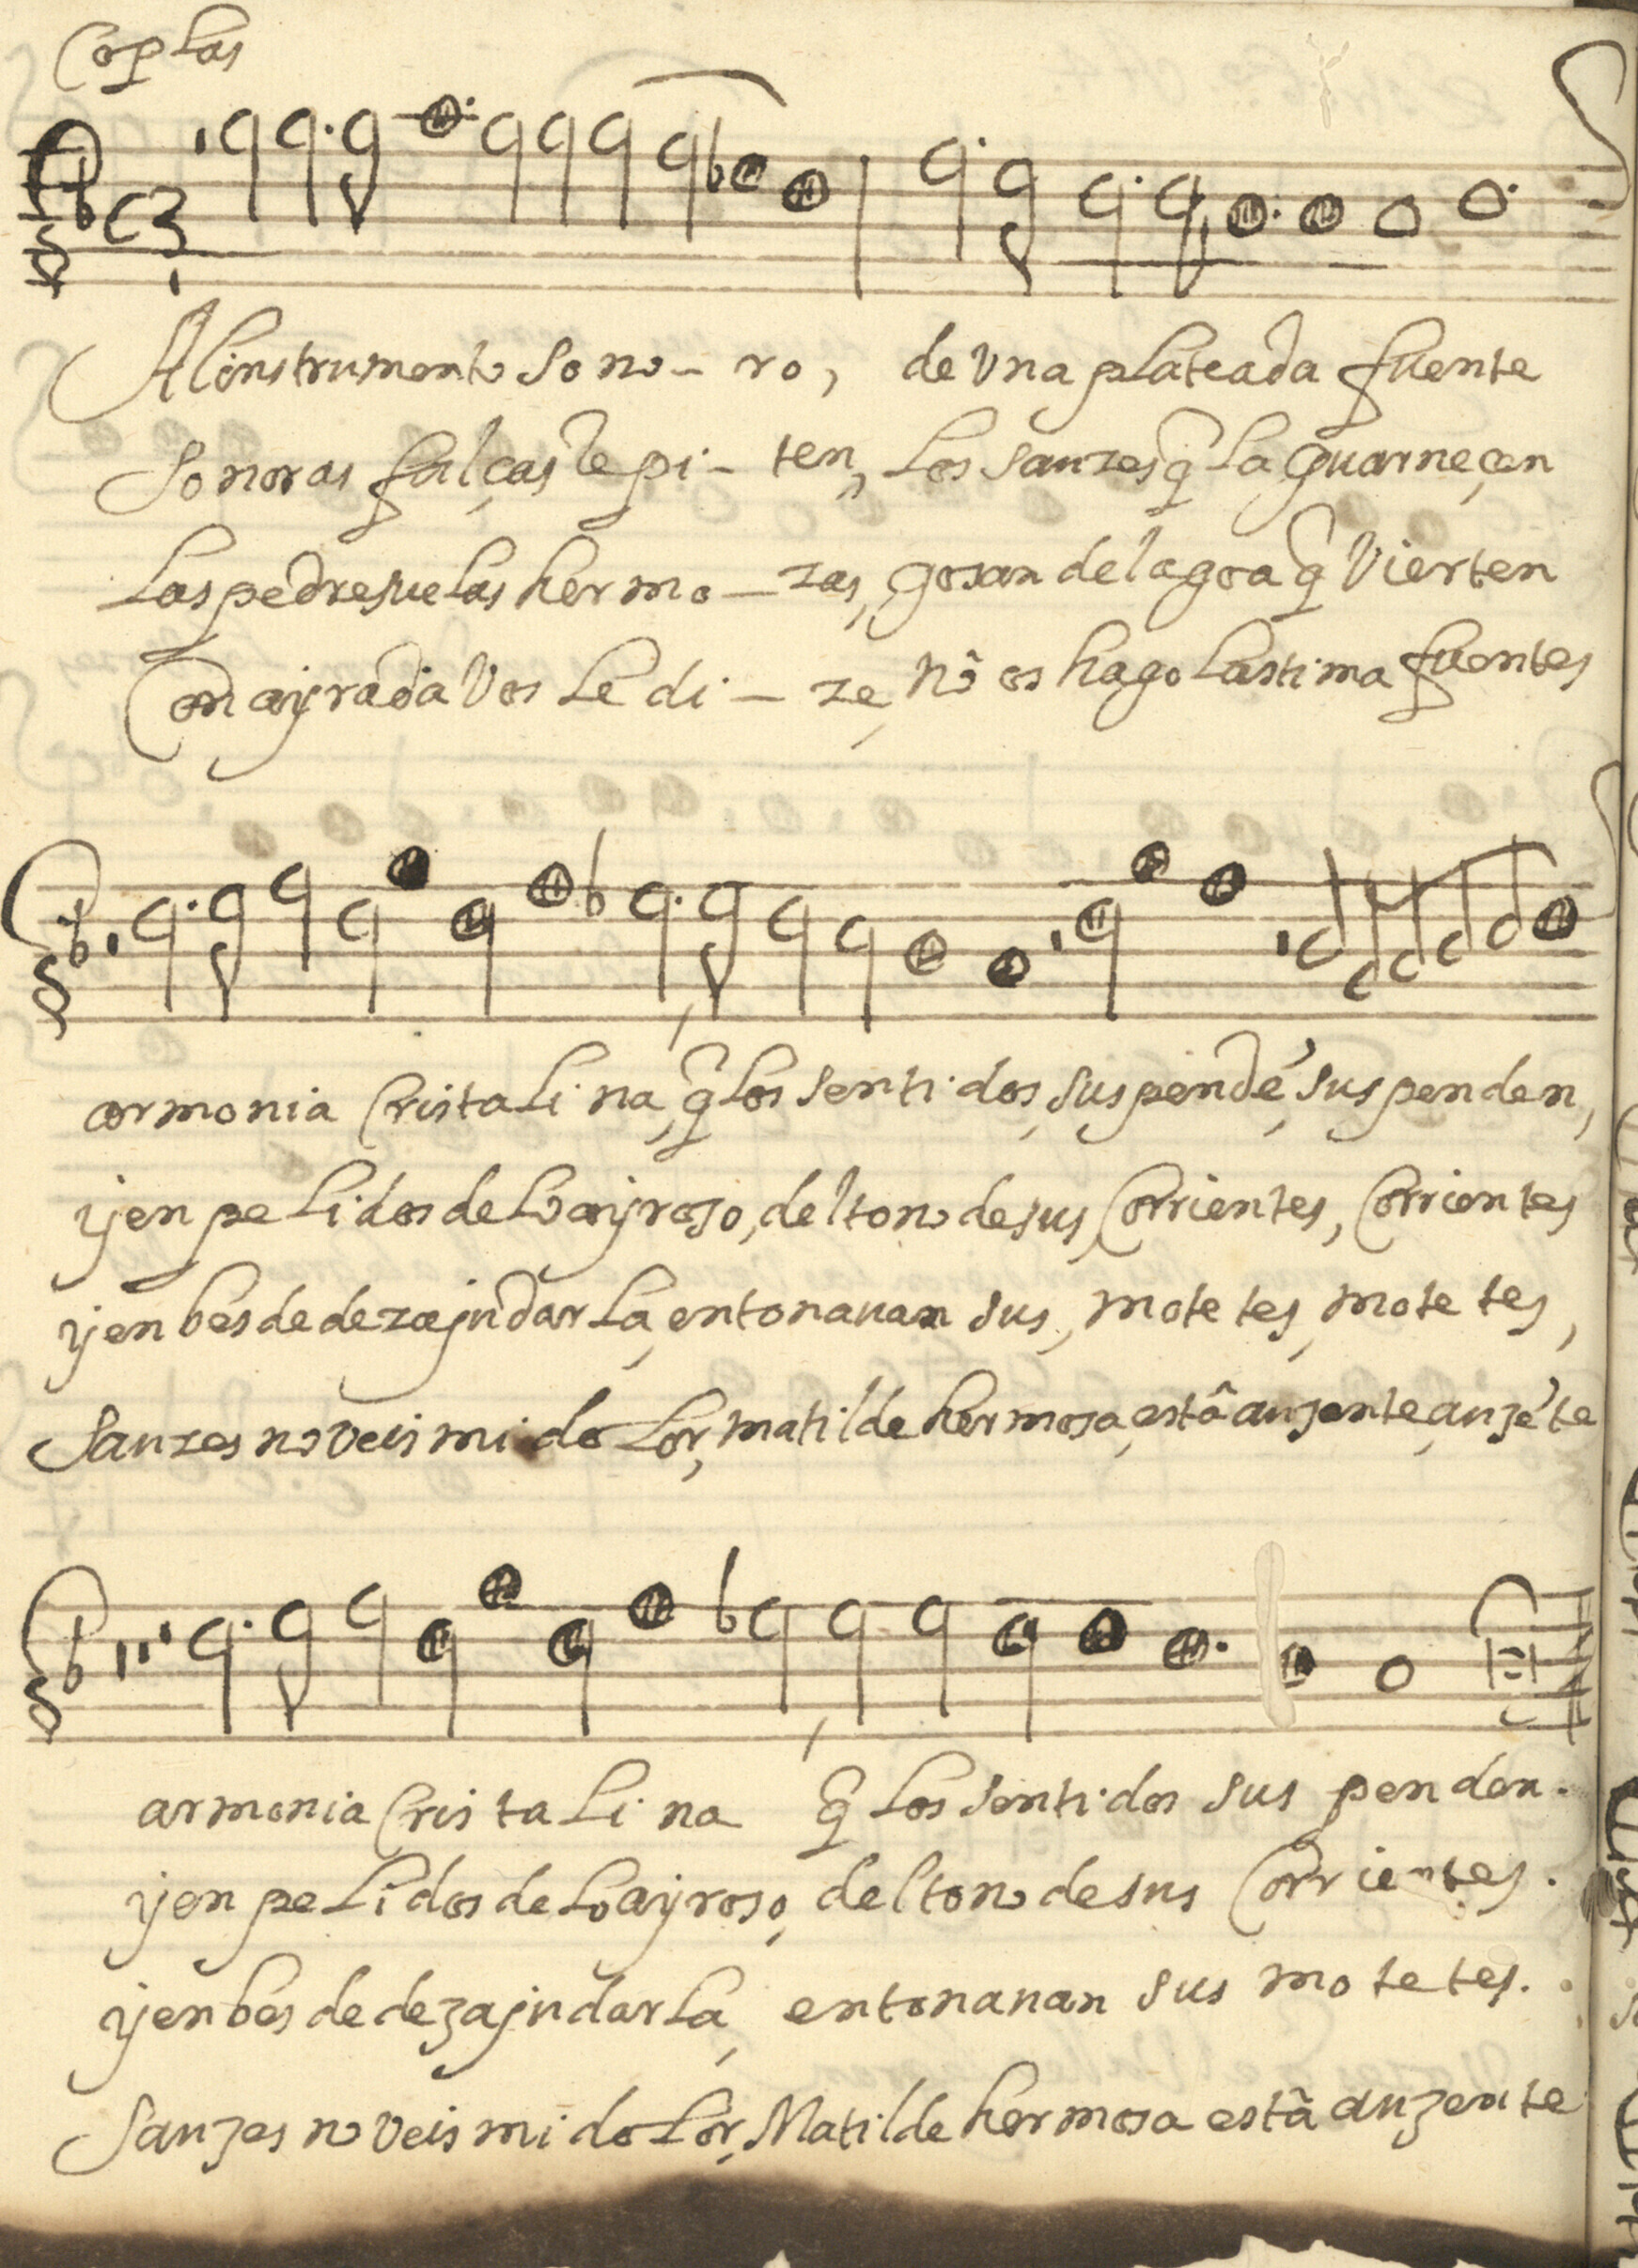 Coplas
Al instrumento sono- ro, de Una plateada fuente
Sonoras falças le pi- ten, los sauzes q̃ la guarneçen
Las pedresuelas hermo- zas, gosan del agoa q̃ Vierten
Con ayrada Vos le di- ze, nõ os hago lastima fuentes
armonia Cristalina, q̃ los sentidos, suspendẽ, suspenden,
yen pelidos de lo ayroso, del tono de sus, Corrientes, Corrientes
yen bes de dezajudarla, entonauan sus, motetes, motetes,
Sauzes no Veis mi dolor, matilde hermosa, estâ auzente, auzẽte
armonia Cristalina q̃ los sentidos suspenden.
yen pelidos de lo ayroso, del tono de sus Corrientes.
yen bes de dezajudarla, entonauan sus motetes.
Sauzes no Veis mi dolor, Matilde hermosa estã auzente